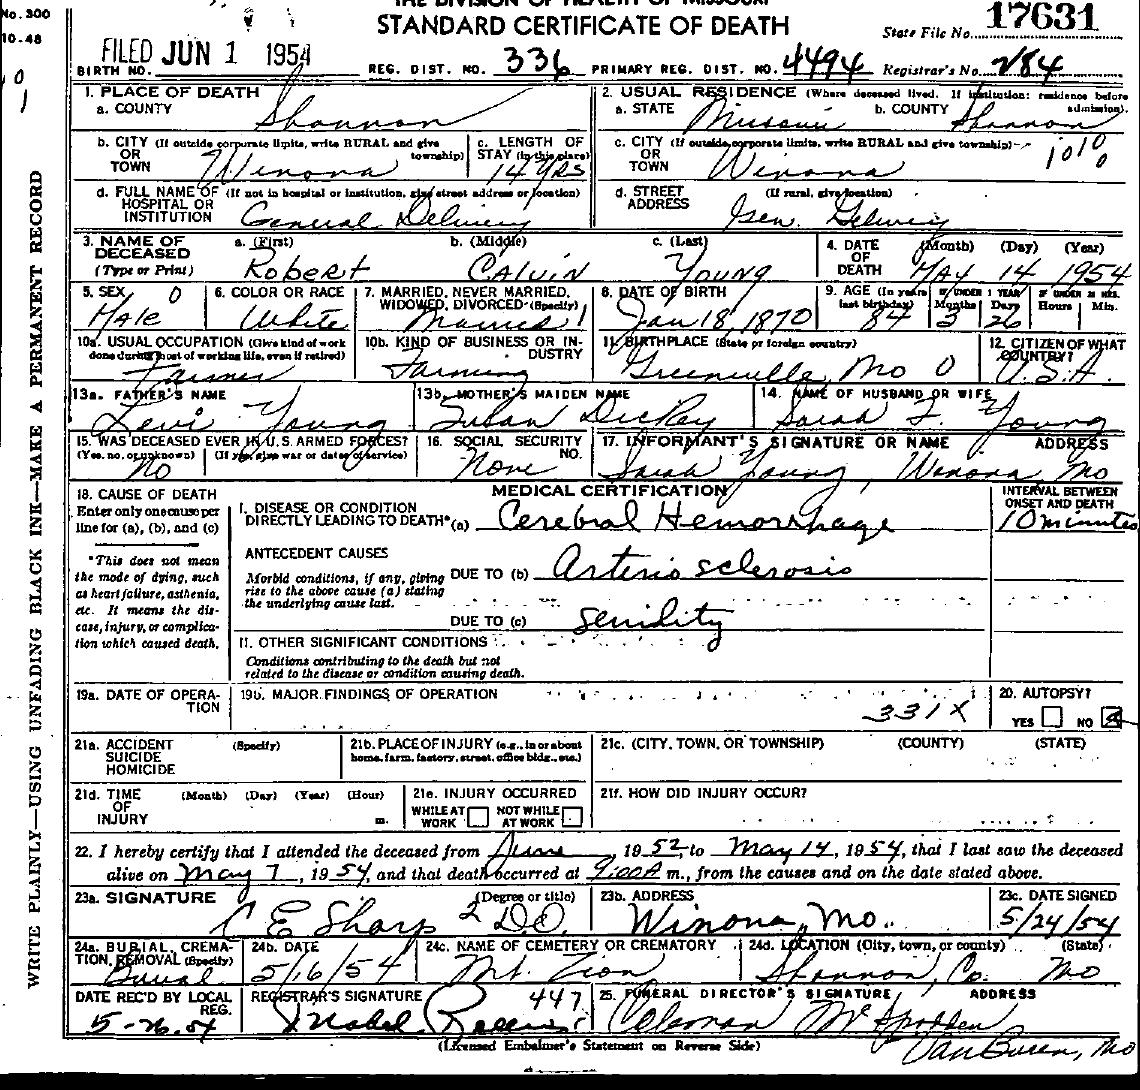 No. 300
10-48
THE DIVISION OF HEALTH OF MISSOURI
STANDARD CERTIFICATE OF DEATH
State File No. 17631
FILED JUN 1 1954
BIRTH NO.
REG. DIST. NO. 336 PRIMARY REG. DIST. NO. 4494 Registrar's No. 284
1. PLACE OF DEATH
a. COUNTY Shannon
b. CITY (If outside corporate limits, write RURAL and give township) OR TOWN Winona
c. LENGTH OF STAY (in this place) 14 YRS
d. FULL NAME OF (If not in hospital or institution, give street address or location) HOSPITAL OR INSTITUTION General Delivery
2. USUAL RESIDENCE (Where deceased lived. If institution: residence before admission).
a. STATE Missouri b. COUNTY Shannon
c. CITY (If outside corporate limits, write RURAL and give township) OR TOWN Winona 1010
0
d. STREET ADDRESS (If rural, give location) Gen. Delivery
3. NAME OF DECEASED (Type or Print) a. (First) Robert b. (Middle) Calvin c. (Last) Young
4. DATE OF DEATH (Month) (Day) (Year) May 14 1954
5. SEX 0 Male
6. COLOR OR RACE White
7. MARRIED, NEVER MARRIED, WIDOWED, DIVORCED (Specify) Married 1
8. DATE OF BIRTH Jan 18, 1870
9. AGE (In years last birthday) 84 IF UNDER 1 YEAR Months 3 Days 26 IF UNDER 24 HRS. Hours Min.
10a. USUAL OCCUPATION (Give kind of work done during most of working life, even if retired) Farmer
10b. KIND OF BUSINESS OR INDUSTRY Farming
11. BIRTHPLACE (State or foreign country) Greenville, Mo 0
12. CITIZEN OF WHAT COUNTRY? U.S.A.
13a. FATHER'S NAME Levi Young
13b. MOTHER'S MAIDEN NAME Susan Dickey
14. NAME OF HUSBAND OR WIFE Sarah F. Young
15. WAS DECEASED EVER IN U.S. ARMED FORCES? (Yes, no, or unknown) (If yes, give war or dates of service) No
16. SOCIAL SECURITY NO. None
17. INFORMANT'S SIGNATURE OR NAME ADDRESS Sarah Young, Winona, Mo
18. CAUSE OF DEATH
Enter only one cause per line for (a), (b), and (c)
*This does not mean the mode of dying, such as heart failure, asthenia, etc. It means the disease, injury, or complication which caused death.
MEDICAL CERTIFICATION
INTERVAL BETWEEN ONSET AND DEATH
I. DISEASE OR CONDITION DIRECTLY LEADING TO DEATH* (a) Cerebral Hemorrhage 10 minutes
ANTECEDENT CAUSES
Morbid conditions, if any, giving rise to the above cause (a) stating the underlying cause last.
DUE TO (b) Arterio sclerosis
DUE TO (c) Senility
II. OTHER SIGNIFICANT CONDITIONS
Conditions contributing to the death but not related to the disease or condition causing death.
19a. DATE OF OPERATION
19b. MAJOR FINDINGS OF OPERATION
331X
20. AUTOPSY? YES NO
21a. ACCIDENT SUICIDE HOMICIDE (Specify)
21b. PLACE OF INJURY (e.g., in or about home, farm, factory, street, office bldg., etc.)
21c. (CITY, TOWN, OR TOWNSHIP) (COUNTY) (STATE)
21d. TIME OF INJURY (Month) (Day) (Year) (Hour) m.
21e. INJURY OCCURRED WHILE AT WORK NOT WHILE AT WORK
21f. HOW DID INJURY OCCUR?
22. I hereby certify that I attended the deceased from June, 1952, to May 14, 1954, that I last saw the deceased
alive on May 7, 1954, and that death occurred at 9:00 A m., from the causes and on the date stated above.
23a. SIGNATURE (Degree or title) C E Sharp 2 DO
23b. ADDRESS Winona, Mo.
23c. DATE SIGNED 5/24/54
24a. BURIAL, CREMATION, REMOVAL (Specify) Burial
24b. DATE 5/16/54
24c. NAME OF CEMETERY OR CREMATORY Mt. Zion
24d. LOCATION (City, town, or county) (State) Shannon, Co. Mo
DATE REC'D BY LOCAL REG. 5-26-54
REGISTRAR'S SIGNATURE Mabel 447
25. FUNERAL DIRECTOR'S SIGNATURE ADDRESS Coleman McSpadden
Van Buren, Mo
(Licensed Embalmer's Statement on Reverse Side)
WRITE PLAINLY—USING UNFADING BLACK INK—MAKE A PERMANENT RECORD